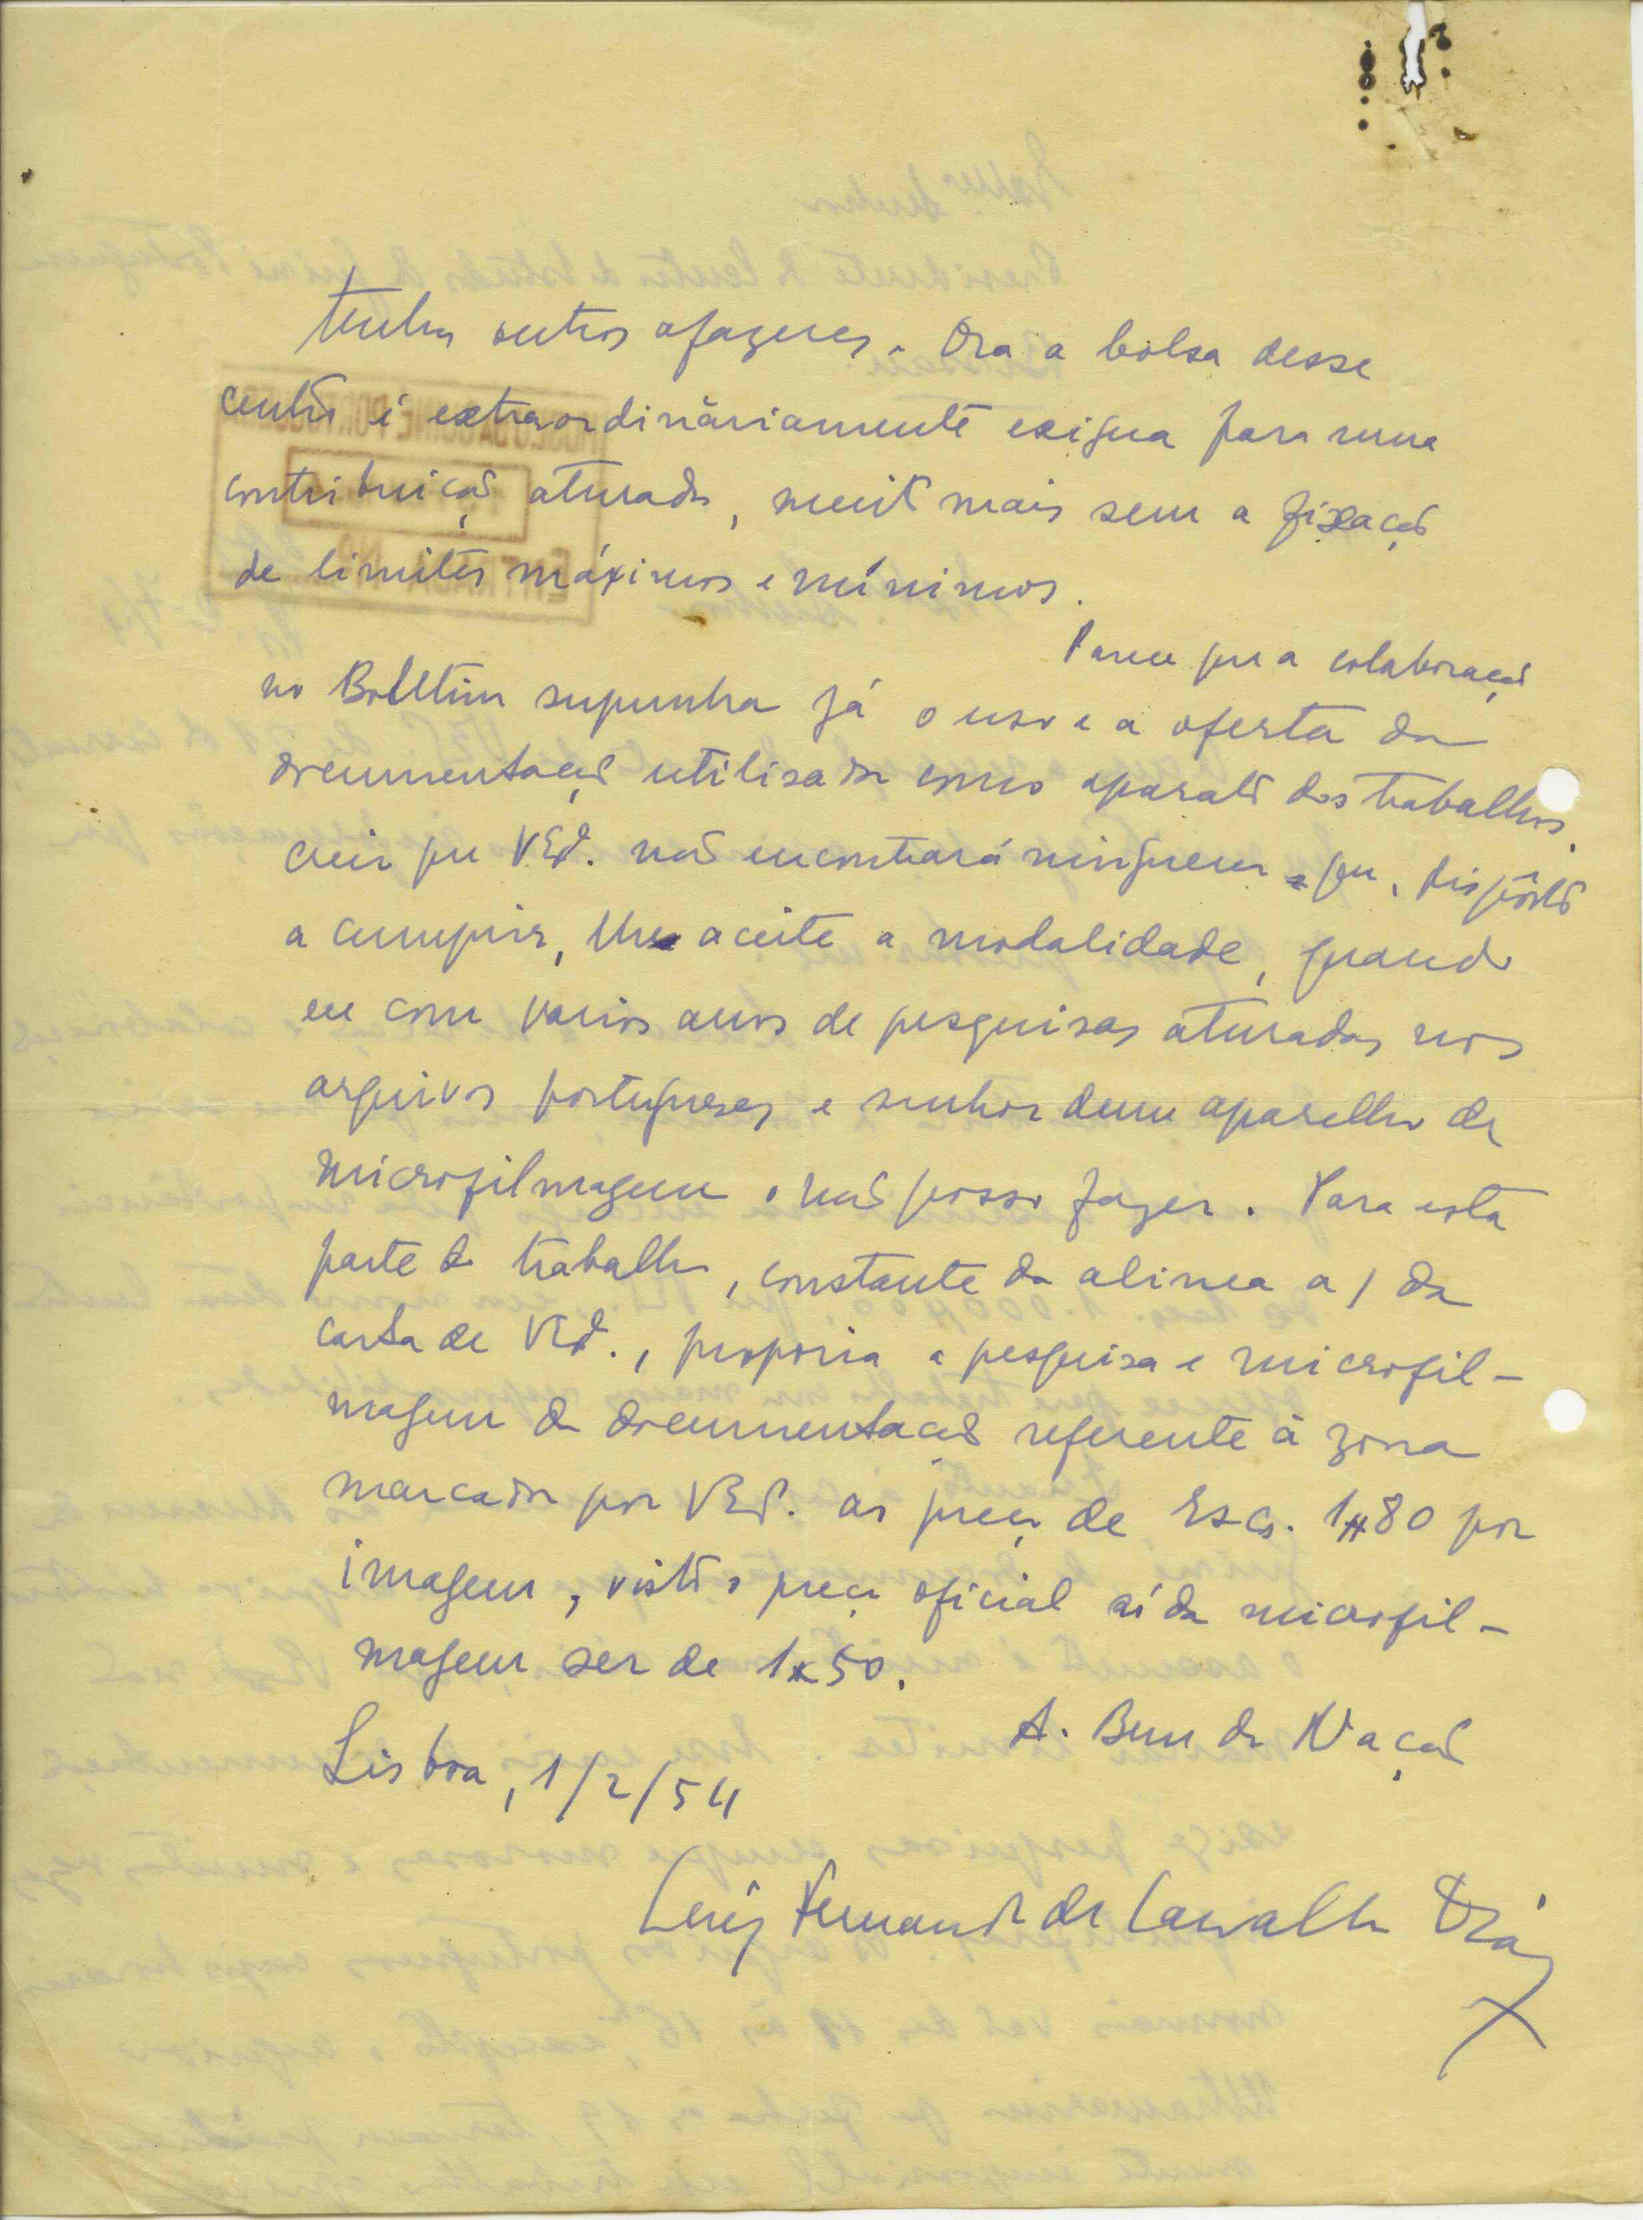 tenho outros afazeres. Ora a bolsa desse
centro é extraordinàriamente exigua para uma
contribuição aturada, muito mais sem a fixação
de limites máximos e mínimos.
Parece que a colaboração
no Boletim supunha já o uso e a oferta da
documentação utilisada como aparato dos trabalhos.
creio que VExª. não encontrará ninguem que, disposto
a cumprir, lhe aceite a modalidade, quando
eu com varios anos de pesquisas aturadas nos
arquivos portugueses e senhor dum aparelho de
microfilmagem o não posso fazer. Para esta
parte do trabalho, constante da alinea a) da
carta de VExª., proporia a pesquisa e microfil-
magem da documentação referente à zona
marcada por VExª. ao preço de Escs. 1$80 por
imagem, visto o preço oficial só da microfil-
magem ser de 1$50.
A. Bem da Nação
Lisboa, 1/2/54
Luís Fernando de Carvalho Dias